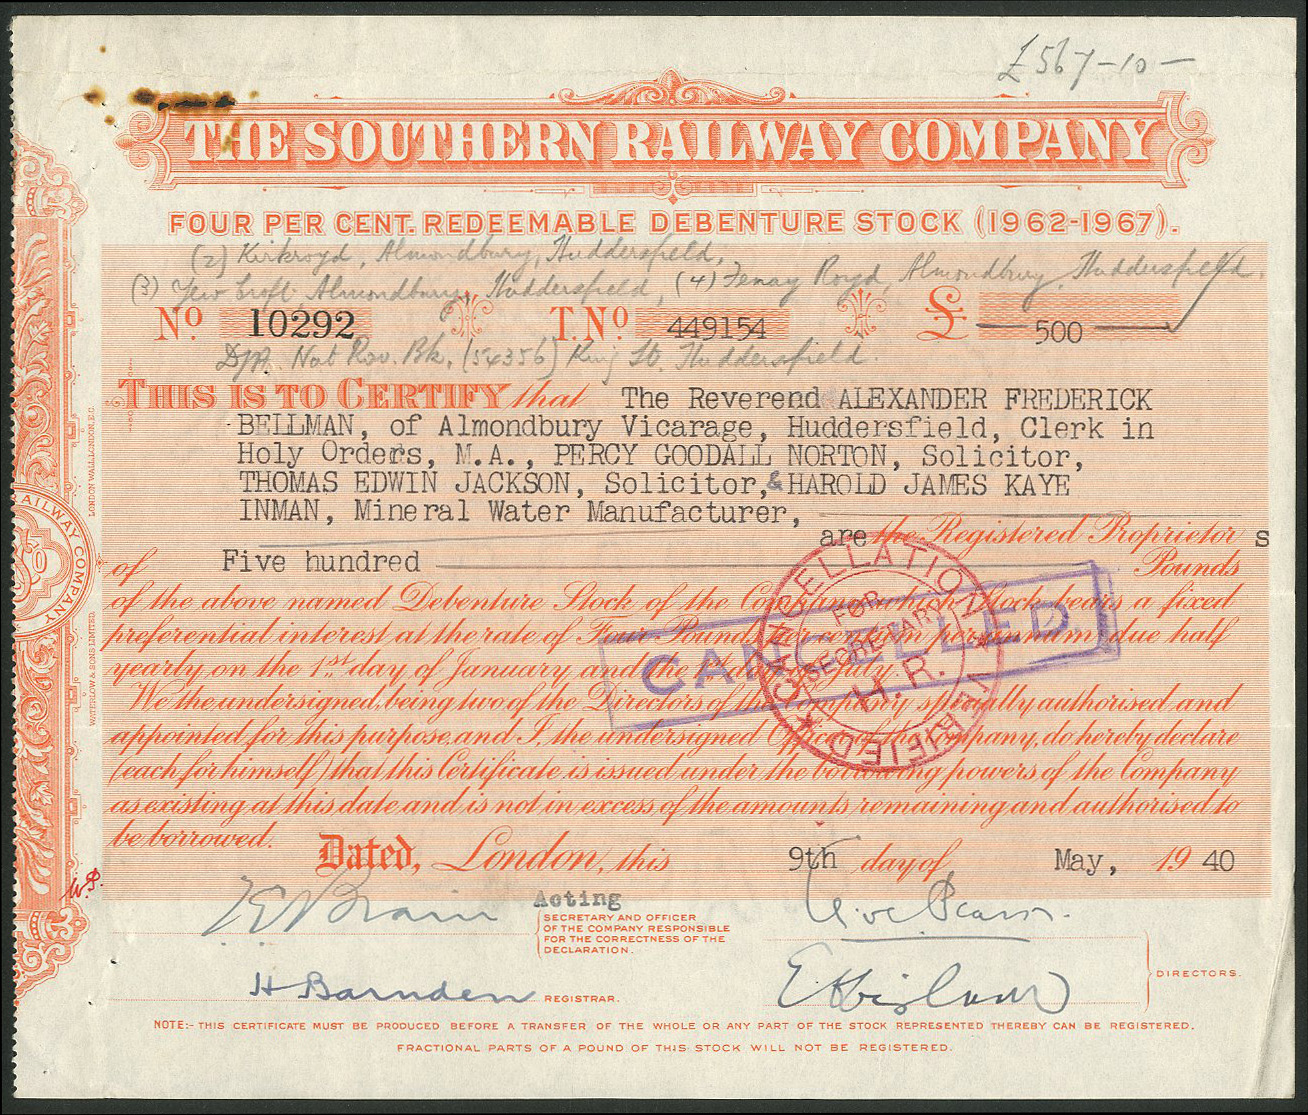 £567-10-
THE SOUTHERN RAILWAY COMPANY
FOUR PER CENT. REDEEMABLE DEBENTURE STOCK (1962-1967).
(2) Kirkroyd, Almondbury, Huddersfield,
(3) Yew Croft, Almondbury, Huddersfield, (4) Fenay Royd, Almondbury, Huddersfield.
No. 10292 T. No. 449154 £ 500
Nat Prov. Bk, (54356) King St. Huddersfield.
THIS IS TO CERTIFY that The Reverend ALEXANDER FREDERICK
BELLMAN, of Almondbury Vicarage, Huddersfield, Clerk in
Holy Orders, M.A., PERCY GOODALL NORTON, Solicitor,
THOMAS EDWIN JACKSON, Solicitor,& HAROLD JAMES KAYE
INMAN, Mineral Water Manufacturer,
are the Registered Proprietor s
of Five hundred Pounds
of the above named Debenture Stock of the Company which Stock bears a fixed
preferential interest at the rate of Four Pounds per centum per annum due half
yearly on the 1st day of January and the 1st day of July.
We the undersigned, being two of the Directors of the Company specially authorised and
appointed for this purpose, and I, the undersigned Officer of the Company, do hereby declare
(each for himself) that this Certificate is issued under the borrowing powers of the Company
as existing at this date and is not in excess of the amounts remaining and authorised to
be borrowed.
CANCELLED
CANCELLATION VERIFIED
FOR
SECRETARY
H.R.
Dated, London, this 9th day of May, 19 40
Acting
SECRETARY AND OFFICER
OF THE COMPANY RESPONSIBLE
FOR THE CORRECTNESS OF THE
DECLARATION.
H Barnden REGISTRAR.
DIRECTORS.
NOTE:- THIS CERTIFICATE MUST BE PRODUCED BEFORE A TRANSFER OF THE WHOLE OR ANY PART OF THE STOCK REPRESENTED THEREBY CAN BE REGISTERED.
FRACTIONAL PARTS OF A POUND OF THIS STOCK WILL NOT BE REGISTERED.
RAILWAY COMPANY
WATERLOW & SONS LIMITED,
LONDON WALL, LONDON, E.C.
W.P.